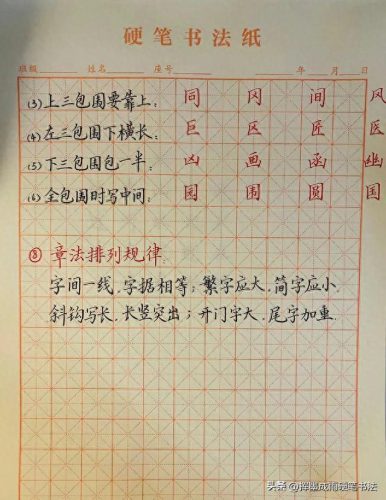 硬笔书法纸
班级 姓名 座号 年 月 日
(3)上三包围要靠上: 同 冈 间 风
(4)左三包围下横长: 巨 区 匠 医
(5)下三包围包一半: 凶 画 函 幽
(6)全包围时写中间: 园 围 圆 国
⑧ 章法排列规律:
字间一线,字据相等;繁字应大,简字应小,
斜钩写长,长竖突出;开门字大,尾字加重.
头条 @挥幽成翰硬笔书法